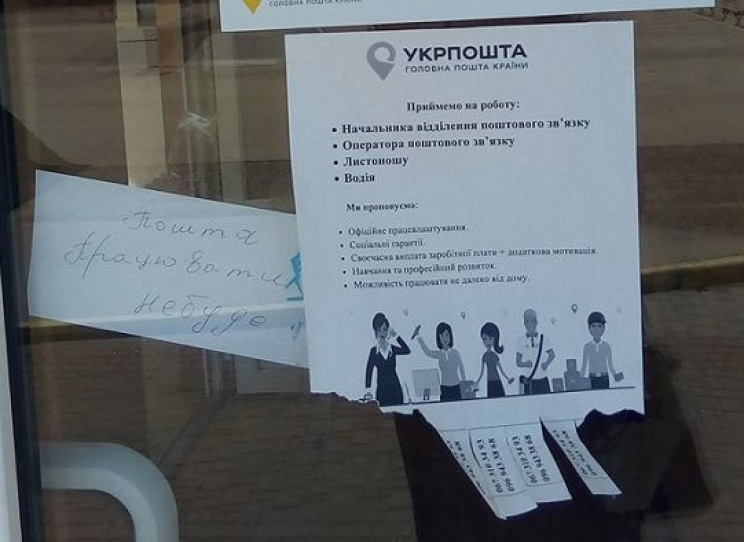 ГОЛОВНА ПОШТА КРАЇНИ
УКРПОШТА
ГОЛОВНА ПОШТА КРАЇНИ
Приймемо на роботу:
• Начальника відділення поштового зв’язку
• Оператора поштового зв’язку
• Листоношу
• Водія
Ми пропонуємо:
• Офіційне працевлаштування.
• Соціальні гарантії.
• Своєчасна виплата заробітної плати + додаткова мотивація.
• Навчання та професійний розвиток.
• Можливість працювати не далеко від дому.
Пошта
Працювати
небуде
067 310 34 93
096 943 38 68
067 310 34 93
096 943 38 68